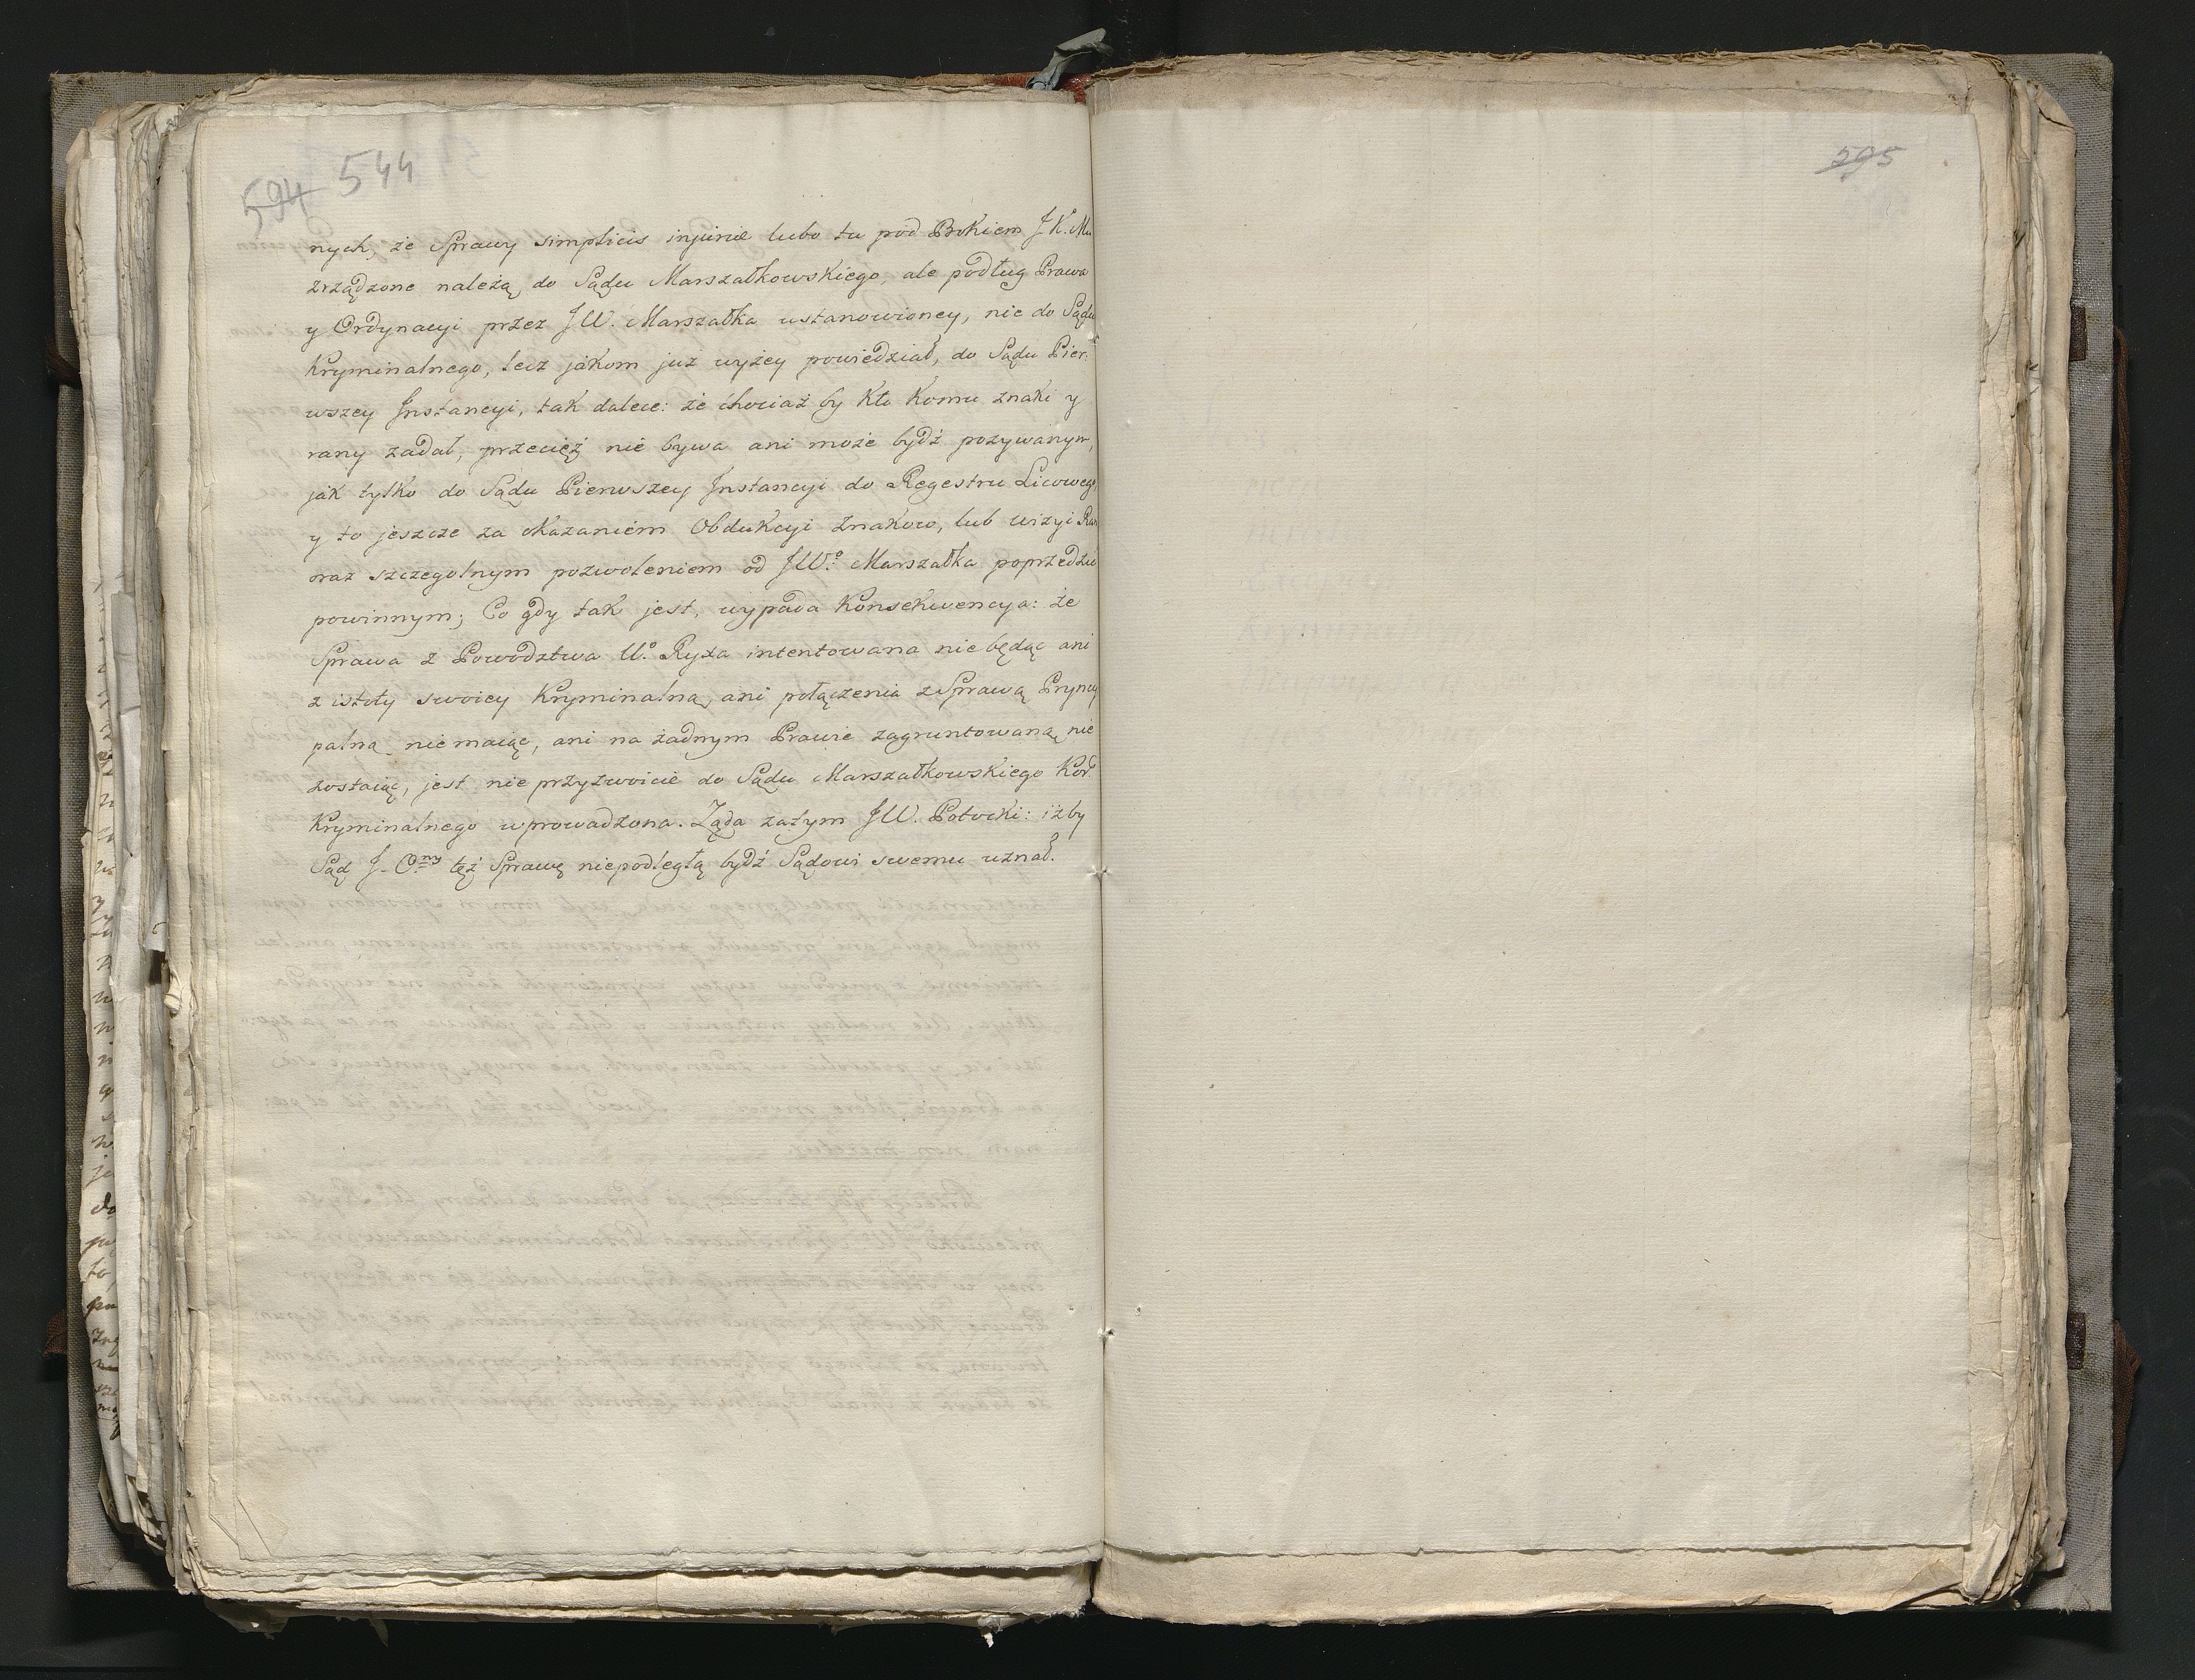 594 544
595
nych, że Sprawy simplicis injuriæ lubo tu pod Bokiem J K. Mci
zrządzone należą do Sądu Marszałkowskiego, ale podług Prawa
y Ordynacyi przez JW. Marszałka ustanowioney, nie do Sądu
Kryminalnego, lecz jakom już wyżey powiedział, do Sądu Pier:
wszey Instancyi, tak dalece: że chociaż by Kto Komu znaki y
rany zadał, przecięż nie bywa ani może bydź pozywanym,
jak tylko do Sądu Pierwszey Instancyi do Regestru Licowego,
y to jeszcze za okazaniem Obdukcyi Znakow, lub wizyi Ran
oraz szczegolnym pozwoleniem od JWo. Marszałka poprzedzić
powinnym; Co gdy tak jest, wypada Konsekwencya: że
Sprawa z Powodztwa Uo. Ryxa intentowana nie będąc ani
z istoty swoiey Kryminalną, ani połączenia z Sprawą Pryncy
palną nie maiąc, ani na żadnym Prawie zagruntowaną nie
zostaiąc, jest nie przyzwoicie do Sądu Marszałkowskiego Kor.
Kryminalnego wprowadzona. Ząda zatym JW. Potocki: iżby
Sąd J. Ony tęż Sprawę niepodległą bydź Sądowi swemu uznał.